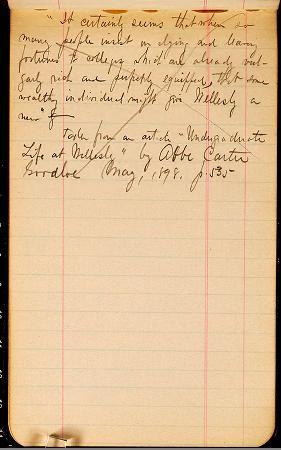 " It certainly seems that when so
many people insist on dying and leaving
fortunes to colleges which are already vul-
garly rich and perfectly equipped, that some
wealthy individual might give Wellesly a
new "
Taken from an article "Undergraduate
Life at Wellesley" by Abbe Carter
Goodloe May, 1898. p. 535